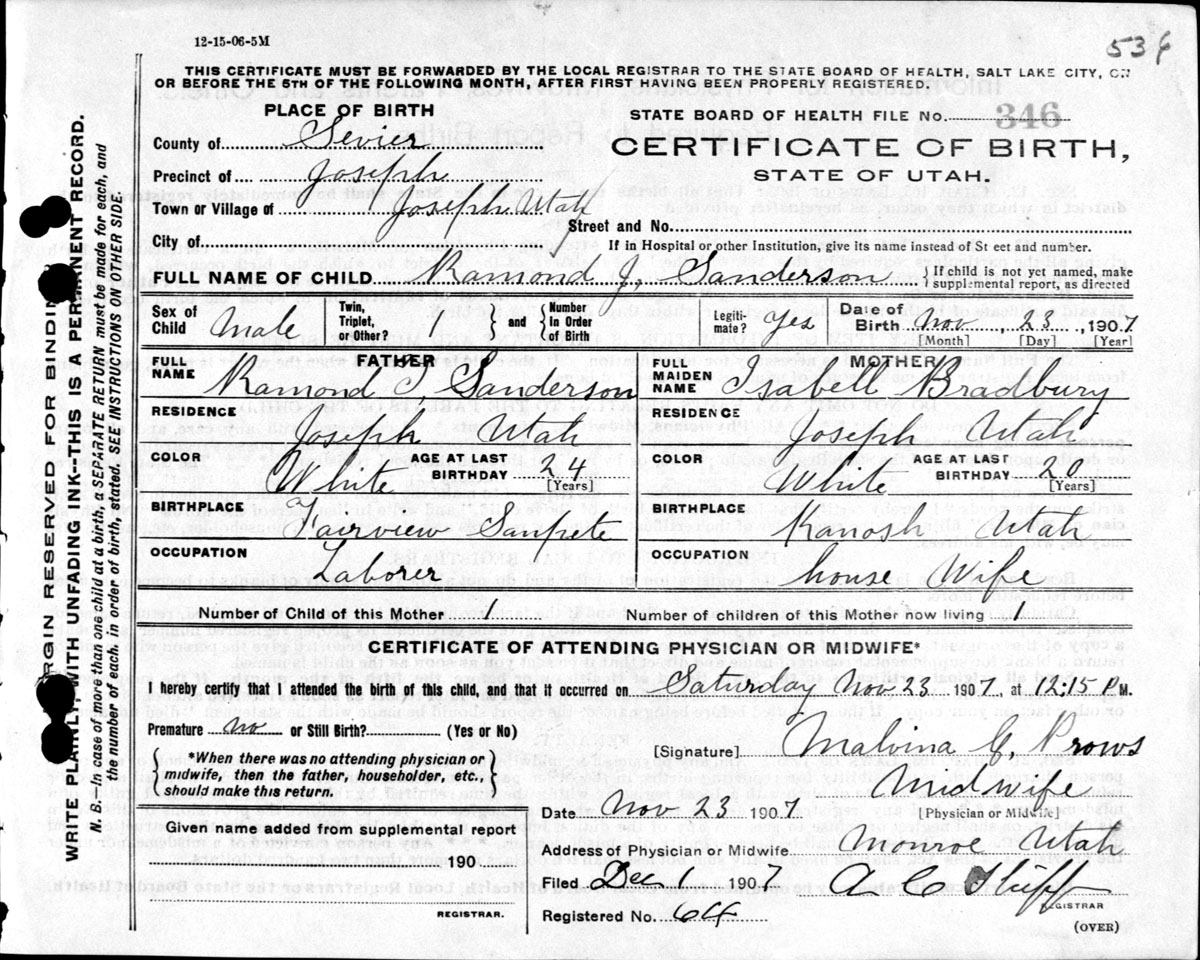 12-15-06-5M
536
THIS CERTIFICATE MUST BE FORWARDED BY THE LOCAL REGISTRAR TO THE STATE BOARD OF HEALTH, SALT LAKE CITY, ON
OR BEFORE THE 5TH OF THE FOLLOWING MONTH, AFTER FIRST HAVING BEEN PROPERLY REGISTERED.
PLACE OF BIRTH
County of Sevier
Precinct of Joseph
Town or Village of Joseph Utah
City of
STATE BOARD OF HEALTH FILE No. 346
CERTIFICATE OF BIRTH,
STATE OF UTAH.
Street and No.
If in Hospital or other Institution, give its name instead of St eet and number.
FULL NAME OF CHILD Ramond J, Sanderson { If child is not yet named, make supplemental report, as directed
Sex of Child Male Twin, Triplet, or Other? 1 } and { Number in Order of Birth Legiti-mate? yes Date of Birth Nov, 23, 1907
[Month] [Day] [Year]
FATHER
FULL NAME Ramond J, Sanderson
RESIDENCE
Joseph Utah
COLOR White AGE AT LAST BIRTHDAY 24
[Years]
BIRTHPLACE
Fairview Sanpete
OCCUPATION
Laborer
Number of Child of this Mother 1
MOTHER
FULL MAIDEN NAME Isabell Bradbury
RESIDENCE
Joseph Utah
COLOR White AGE AT LAST BIRTHDAY 20
[Years]
BIRTHPLACE
Kanosh Utah
OCCUPATION
house Wife
Number of children of this Mother now living 1
CERTIFICATE OF ATTENDING PHYSICIAN OR MIDWIFE*
I hereby certify that I attended the birth of this child, and that it occurred on Saturday Nov 23 1907, at 12:15 P M.
Premature no or Still Birth? (Yes or No)
*When there was no attending physician or
midwife, then the father, householder, etc.,
should make this return.
[Signature] Malvina G, Prows
Midwife
[Physician or Midwife]
Date Nov 23 1907
Address of Physician or Midwife Monroe Utah
Filed Dec 1 1907 A C
REGISTRAR
Registered No. 64
(OVER)
Given name added from supplemental report
190
REGISTRAR.
MARGIN RESERVED FOR BINDING
WRITE PLAINLY, WITH UNFADING INK--THIS IS A PERMANENT RECORD.
N. B. In case of more than one child at a birth, a SEPARATE RETURN must be made for each, and
the number of each, in order of birth, stated. SEE INSTRUCTIONS ON OTHER SIDE.